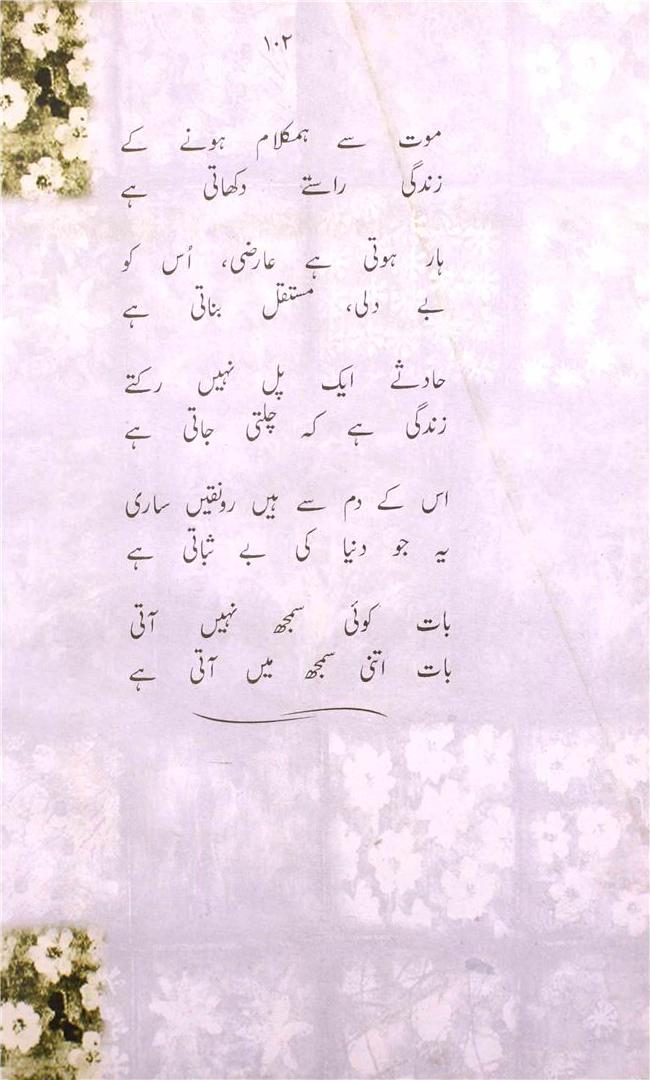 ۱۰۲
موت سے ہمکلام ہونے کے
زندگی راستے دکھاتی ہے
ہار ہوتی ہے عارضی، اُس کو
بے دلی، مستقل بناتی ہے
حادثے ایک پل نہیں رکتے
زندگی ہے کہ چلتی جاتی ہے
اس کے دم سے ہیں رونقیں ساری
یہ جو دنیا کی بے ثباتی ہے
بات کوئی سمجھ نہیں آتی
بات اتنی سمجھ میں آتی ہے